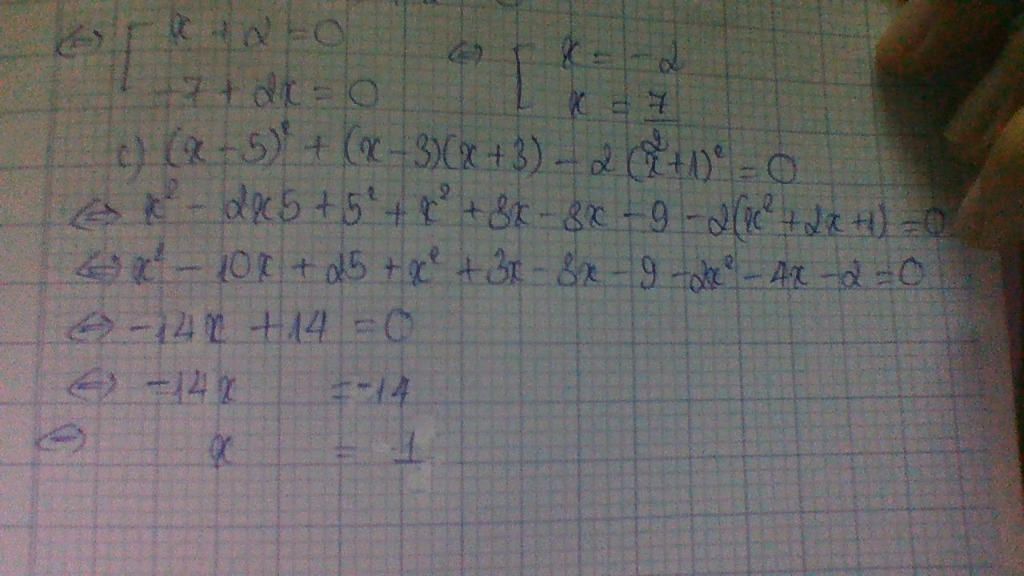 ⇔ [ x + 2 = 0 ⇔ [ x = -2
-7 + 2x = 0 x = 7/2
c) (x - 5)² + (x - 3)(x + 3) - 2(x + 1)² = 0
⇔ x² - 2x5 + 5² + x² + 3x - 3x - 9 - 2(x² + 2x + 1) = 0
⇔ x² - 10x + 25 + x² + 3x - 3x - 9 - 2x² - 4x - 2 = 0
⇔ -14x + 14 = 0
⇔ -14x = -14
⇔ x = 1